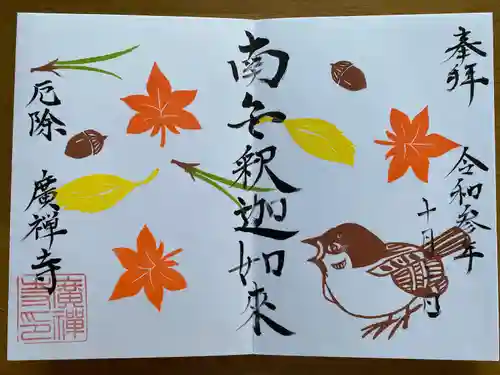 奉拝
令和参年
十月 日
南無釈迦如来
厄除
廣禅寺
廣禅寺印